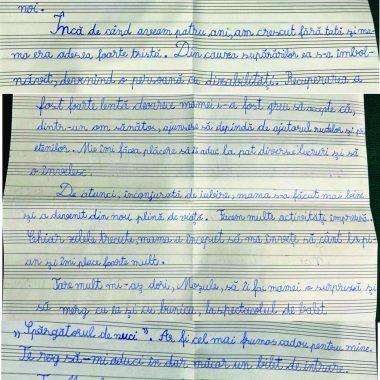 noi.
Încă de când aveam patru ani, am crescut fără tată și ma-
ma era adesea foarte tristă. Din cauza supărărilor ea s-a îmbol-
năvit, devenind o persoană cu dizabilități. Recuperarea a
fost foarte lentă deoarece mamei i-a fost greu să accepte că,
dintr-un om sănătos, ajunsese să depindă de ajutorul rudelor și pri-
etenilor. Mie îmi făcea plăcere să îi aduc la pat diverse lucruri și să
o învelesc.
De atunci, înconjurată de iubire, mama s-a făcut mai bine
și a devenit din nou, plină de viață. Facem multe activități împreună.
Chiar zilele trecute, mama a început să mă învețe să cânt la pi-
an și îmi place foarte mult.
Tare mult mi-aș dori, Moșule, să îi fac mamei o surpriză și
să merg cu ea și cu bunica, la spectacolul de balet
„Spărgătorul de nuci". Ar fi cel mai frumos cadou pentru mine.
Te rog să-mi aduci în dar măcar un bilet de intrare.